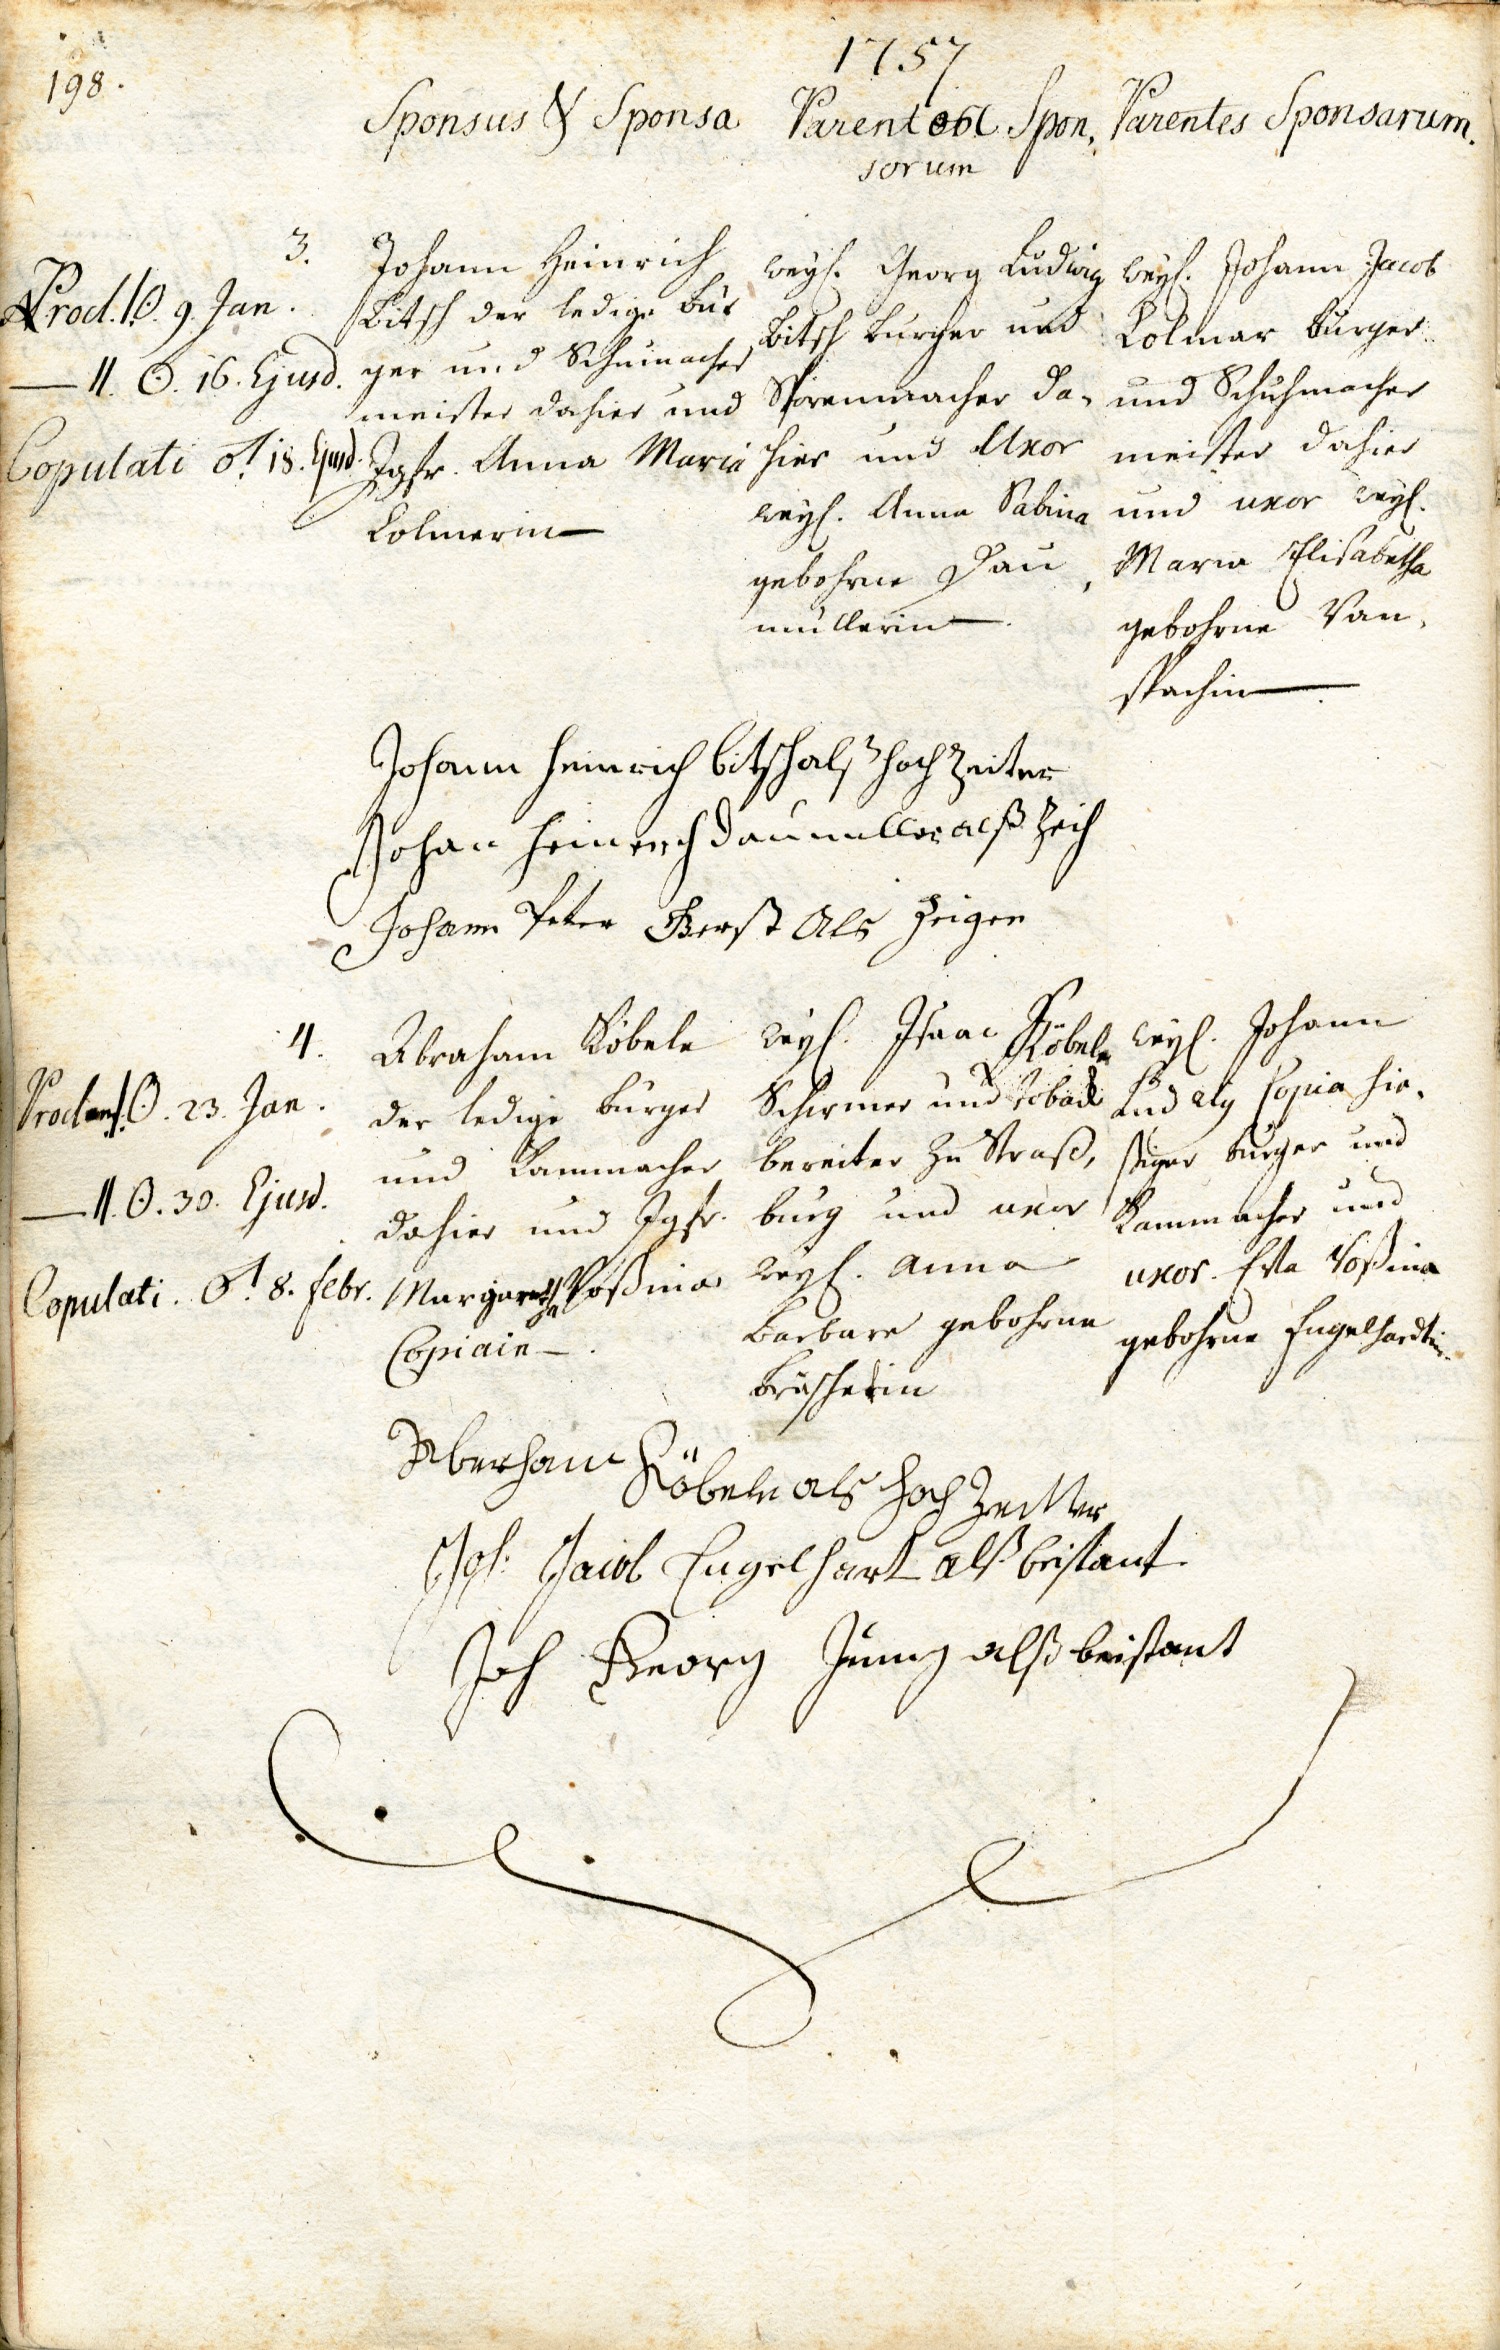 198.
1757
Sponsus & Sponsa
Parentes Spon,
sorum
Parentes Sponsarum.
3.
Procl. I. ☉. 9. Jan.
— II. ☉. 16. Ejusd.
Copulati ♂. 18. Ejusd.
Johann Heinrich
Bitsch der ledige Bur
ger und Schumacher
meister dahier und
Jgfr. Anna Maria
Colmerin —
weyl. Georg Ludwig
Bitsch Burger und
Sporenmacher da,
hier und Uxor
weyl. Anna Sabina
gebohrne Dau,
müllerin —.
weyl. Johann Jacob
Colmar Burger
und Schuhmacher
meister dahier
und uxor weyl.
Maria Elisabetha
gebohrne Van,
spachin —.
Johann Heinrich bitsch alß hoch Zeiter
Johan Heinrich Daumiller alß Zeich
Johann Peter Gerst Als Zeigen
4.
Proclam. I. ☉. 23. Jan.
— II. ☉. 30. Ejusd.
Copulati. ♂. 8. febr.
Abraham Köbele
der ledige Burger
und Kammacher
dahier und Jgfr.
Margaretha Rosina
Copiain —.
weyl. Isaac Köbele
Schirmer und Toback
bereiter zu Straß,
burg und uxor
weyl. Anna
Barbara gebohrne
weyl. Johann
Ludwig Copia hie,
siger Burger und
Kammacher und
uxor. Eva Rosina
gebohrne Engelhardtin.
Aberham Köbele als hoch Zeitter
Joh. Jacob Engelhart alß beistant
Joh Georg Jung alß beistant